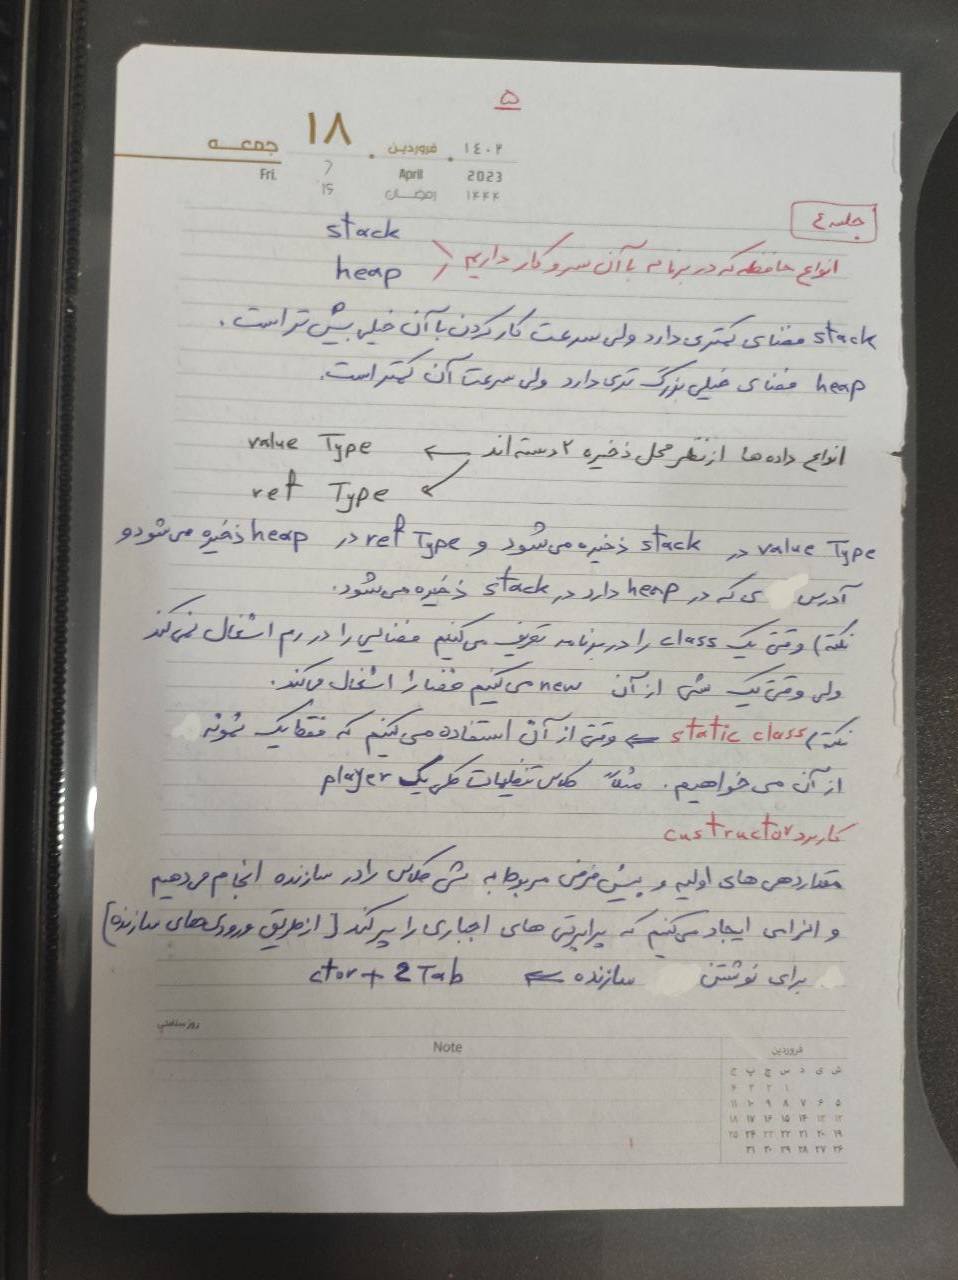 ۵
جمعه ۱۸ فروردین ۱۴۰۲
Fri. 7 April 2023
۱۵ رمضان ۱۴۴۴
جلسه ٤
انواع حافظه که در برنامه با آن سر و کار داریم stack
heap
stack فضای کمتری دارد ولی سرعت کار کردن با آن خیلی بیش تر است.
heap فضای خیلی بزرگ تری دارد ولی سرعت آن کمتر است.
انواع داده ها از نظر محل ذخیره ۲ دسته اند ← value Type
ref Type
value Type در stack ذخیره می‌شود و ref Type در heap ذخیره می‌شود و
آدرس ی که در heap دارد در stack ذخیره می‌شود.
نکته) وقتی یک class را در برنامه تعریف می‌کنیم فضایی را در رم اشغال نمی‌کند
ولی وقتی یک شی از آن new می‌کنیم فضا را اشغال می‌کند.
نکته) static class ← وقتی از آن استفاده می‌کنیم که فقط یک نمونه
از آن می‌خواهیم. مثلاً کلاس تنظیمات کلی یک player
کاربرد custructor
مقداردهی های اولیه و پیش فرض مربوط به شی کلاس را در سازنده انجام می‌دهیم
و الزامی ایجاد می‌کنیم که پراپرتی های اجباری را پر کند [از طریق ورودی‌های سازنده]
برای نوشتن سازنده ← ctor + 2 Tab
روز سلامتی
Note
فروردین
ش ی د س چ پ ج
۱ ۲ ۳ ۴
۵ ۶ ۷ ۸ ۹ ۱۰ ۱۱
۱۲ ۱۳ ۱۴ ۱۵ ۱۶ ۱۷ ۱۸
۱۹ ۲۰ ۲۱ ۲۲ ۲۳ ۲۴ ۲۵
۲۶ ۲۷ ۲۸ ۲۹ ۳۰ ۳۱